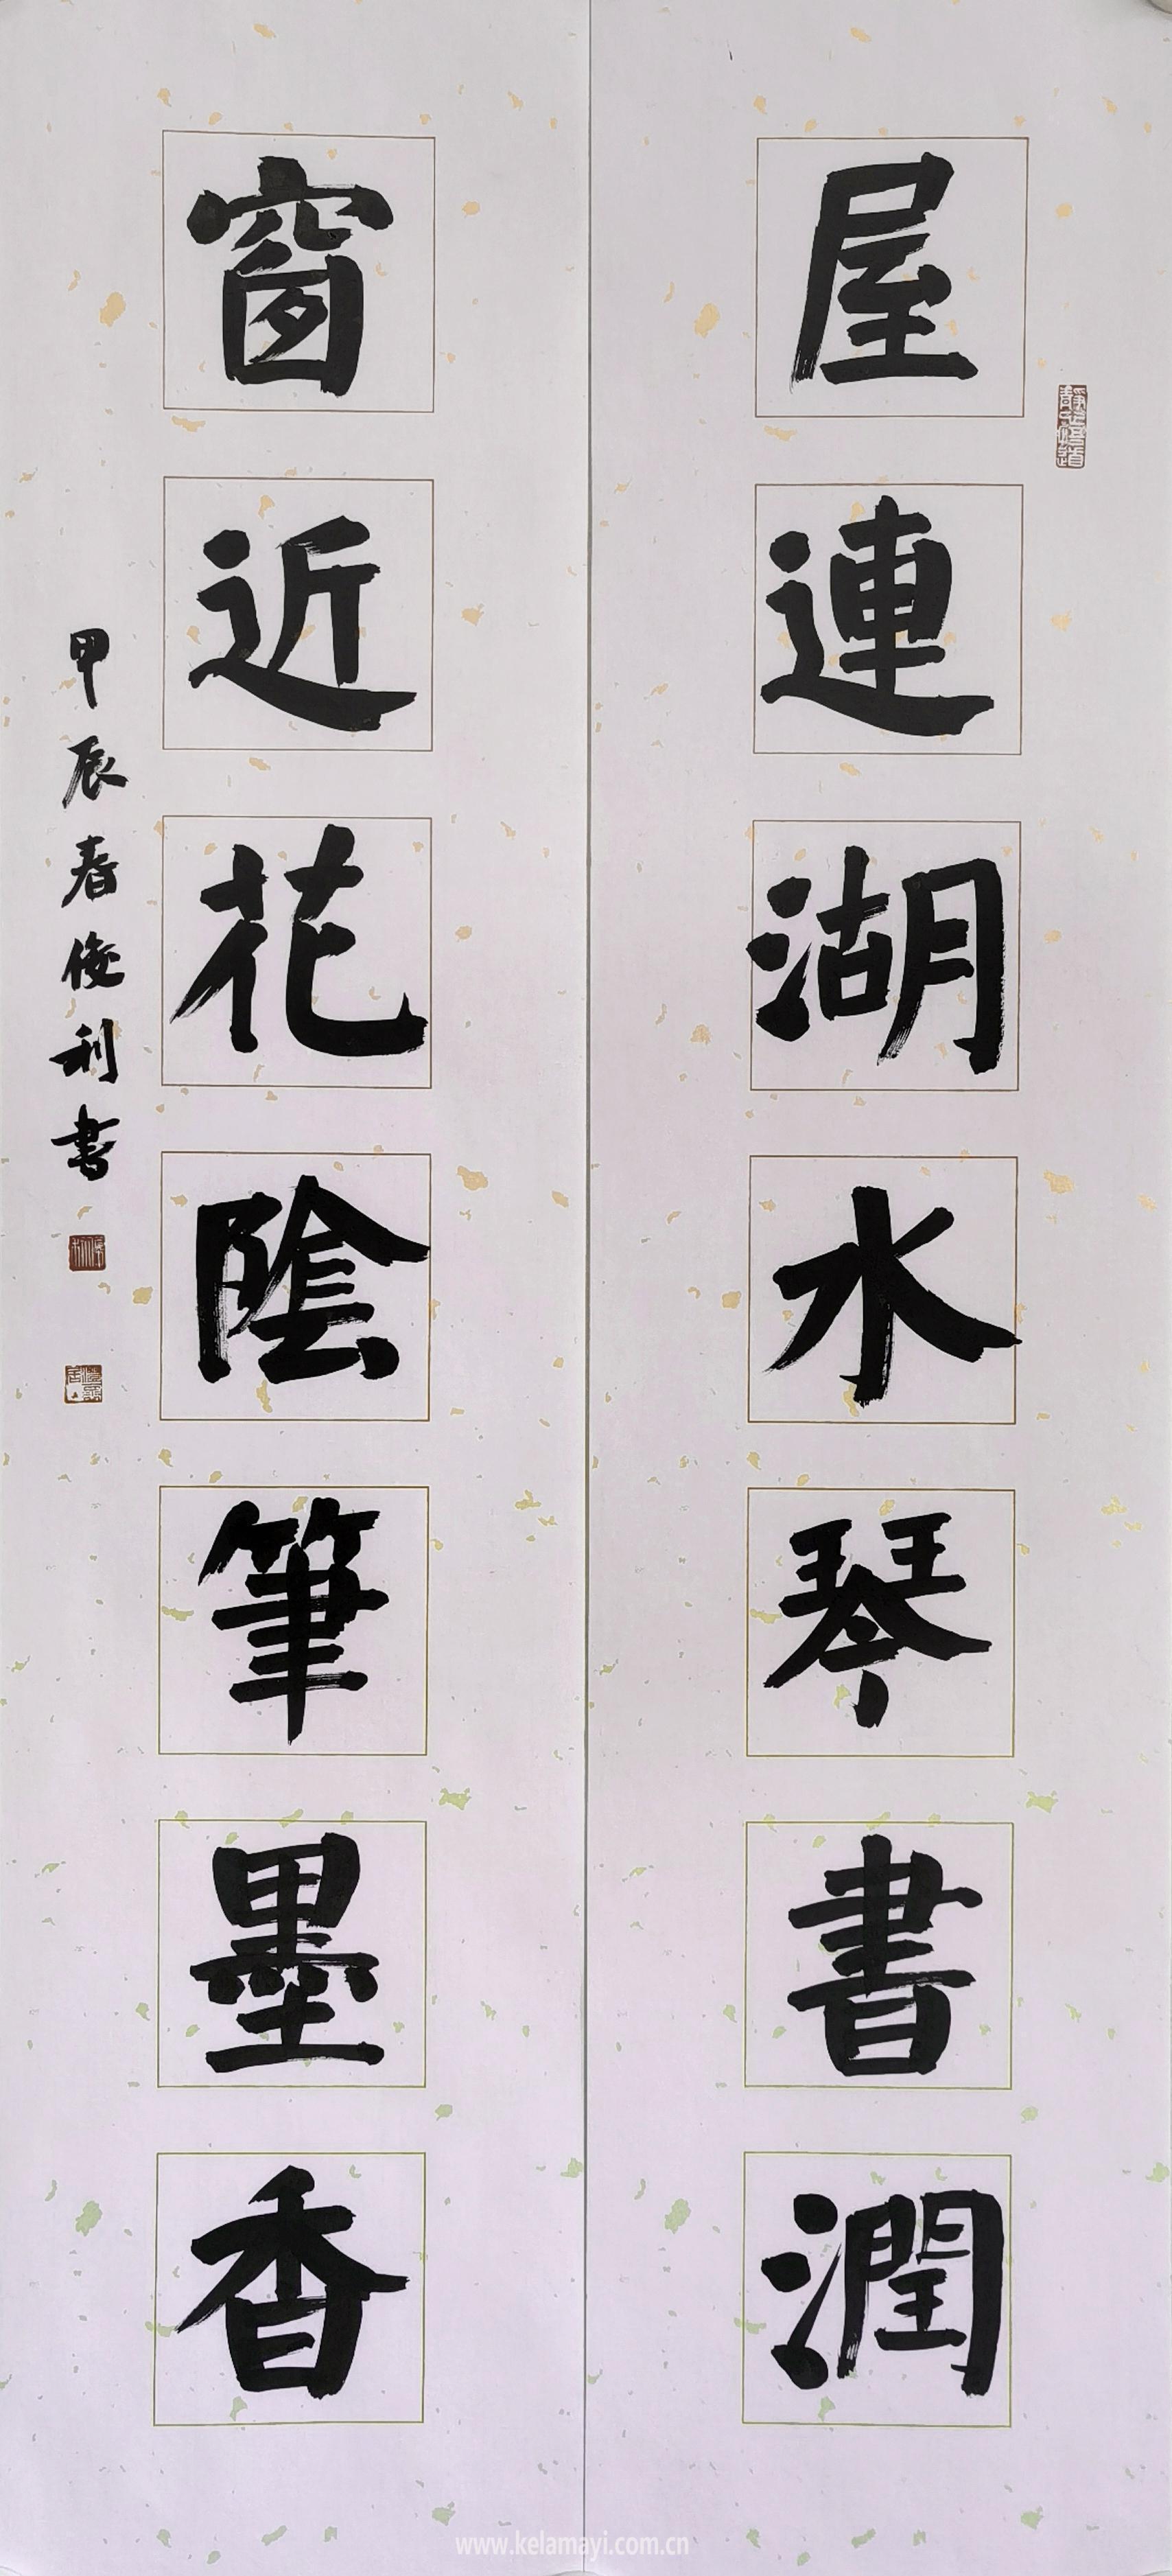 屋連湖水琴書潤
窗近花陰筆墨香
甲辰春俊利书
www.kelamayi.com.cn